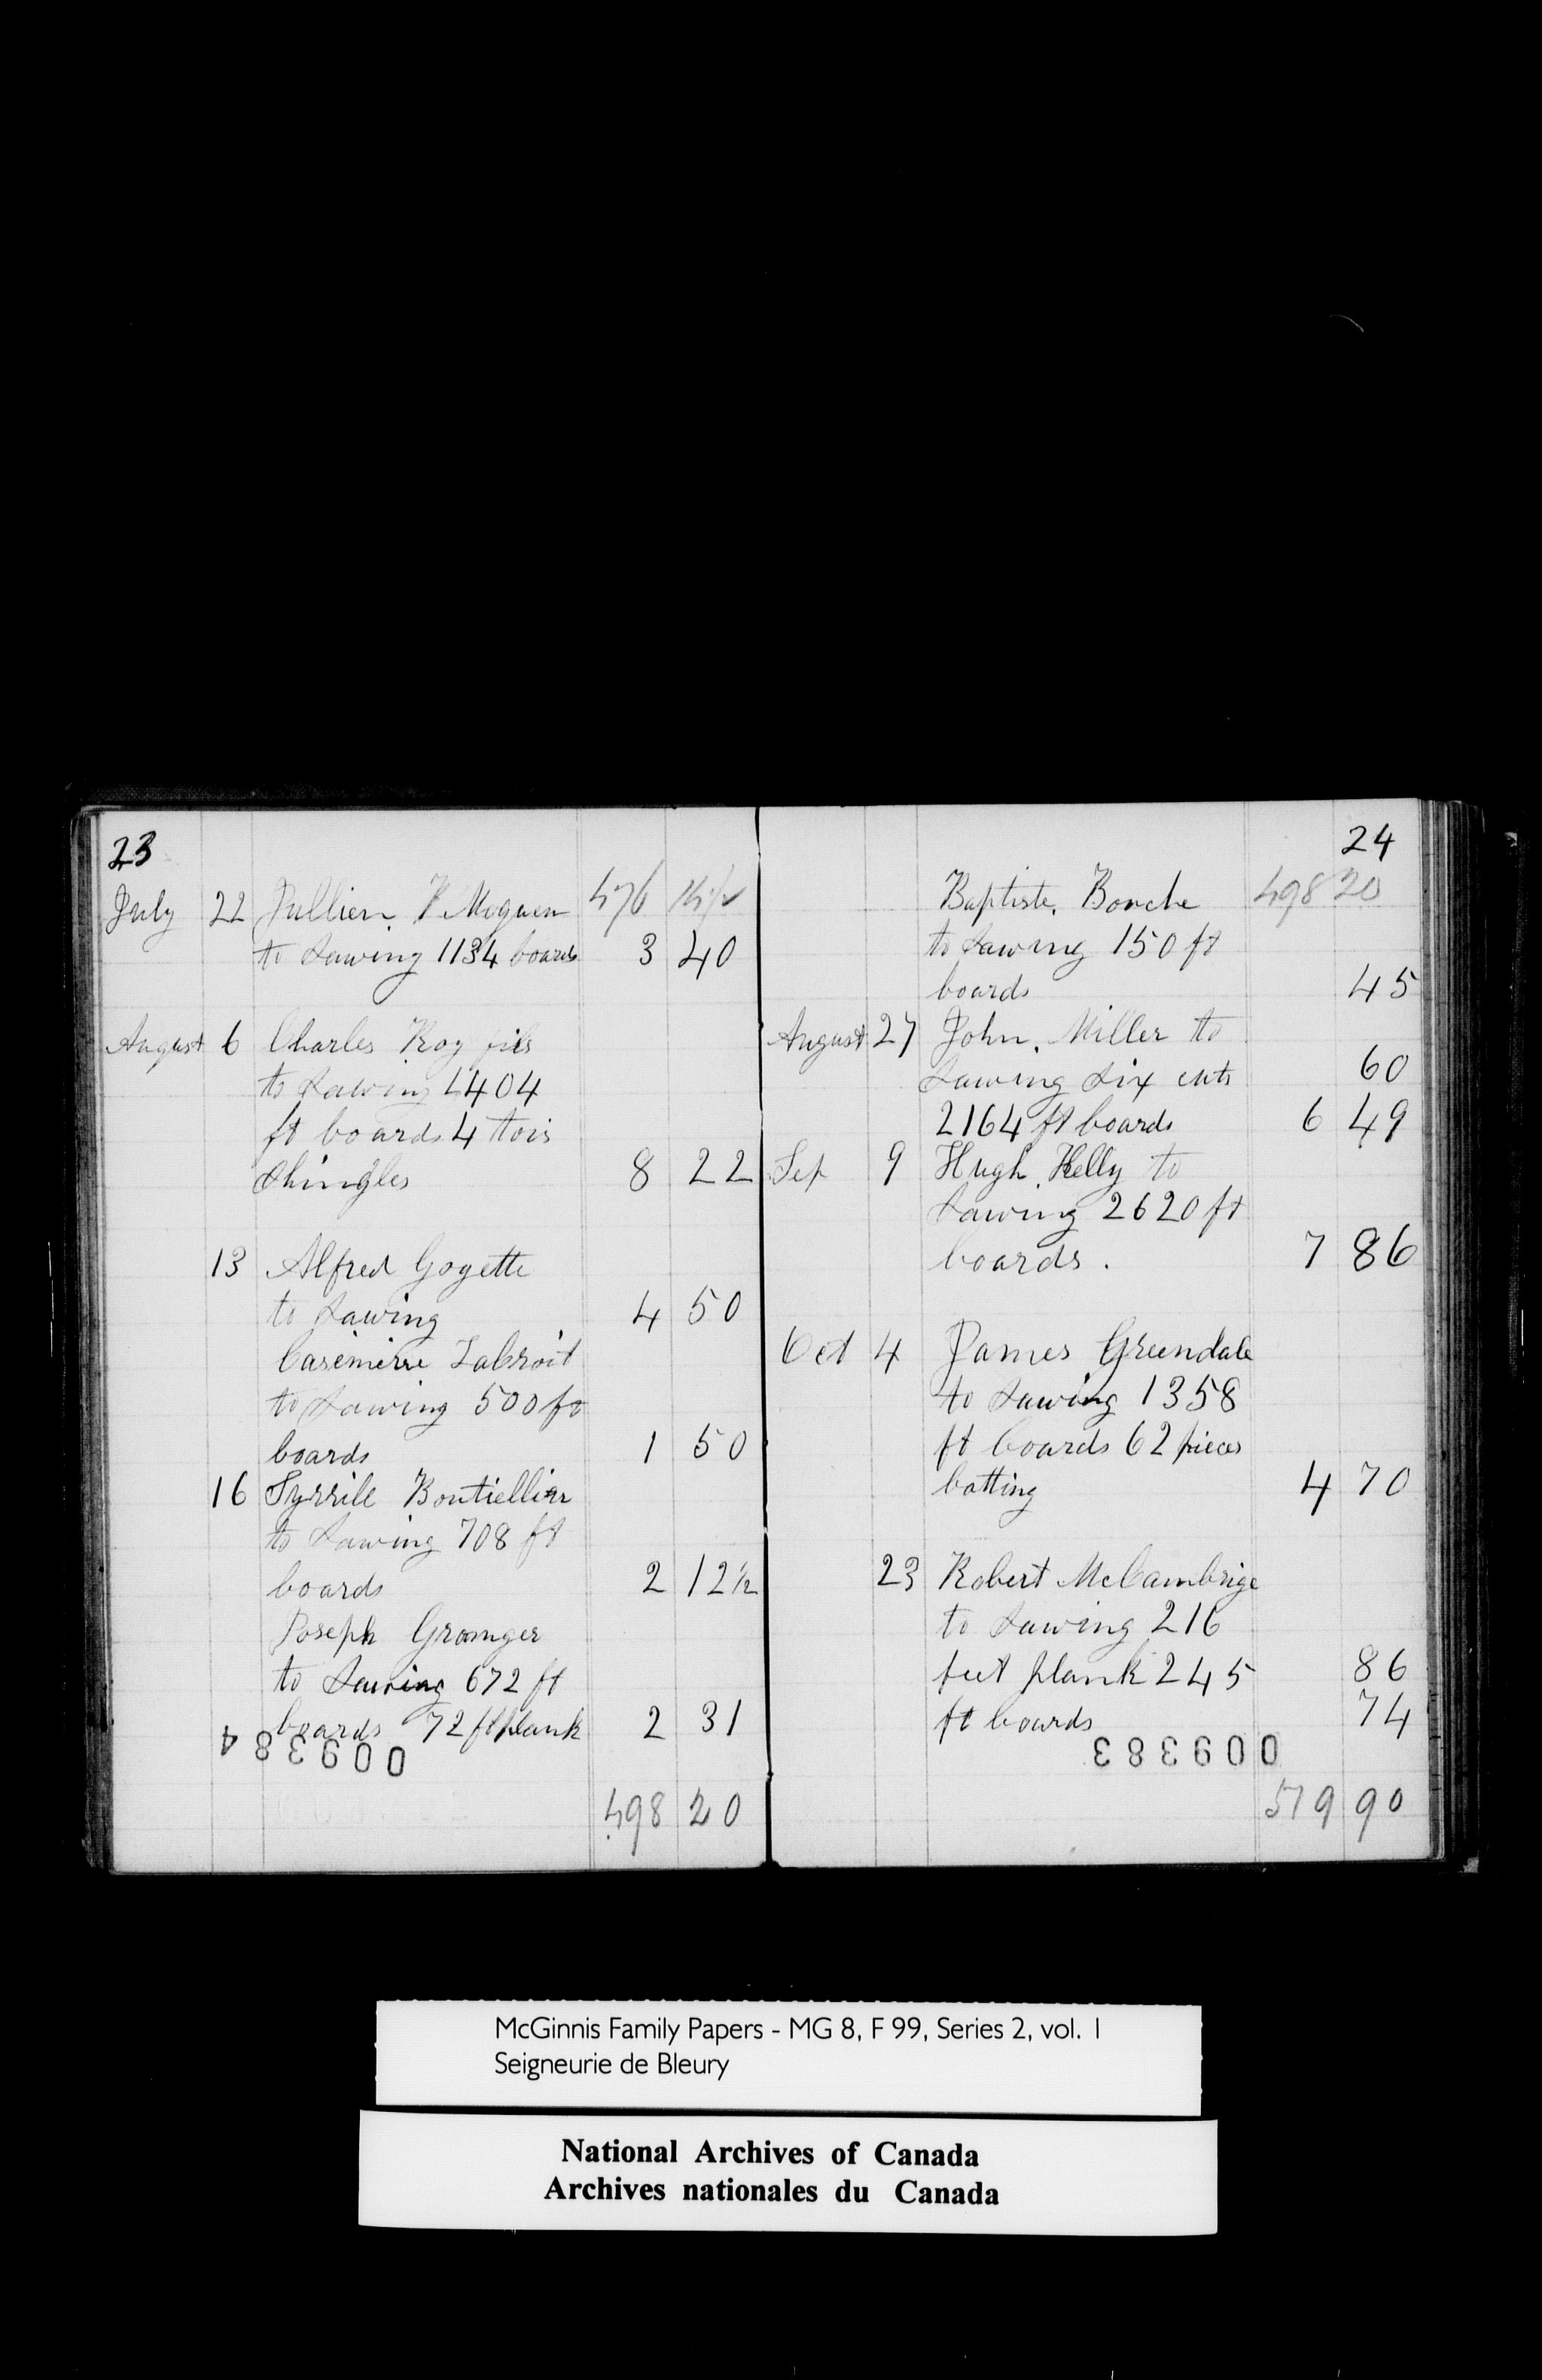 23
July 22 Jullien P Moquen 476 14½
to Sawing 1134 boards 3 40
August 6 Charles Roy fils
to Sawing 1404
ft boards 4 tois
Shingles 8 22
13 Alfred Goyette
to Sawing 4 50
Casimerre Labroit
to Sawing 500 ft
boards 1 50
16 Syrrile Boutiellier
to Sawing 708 ft
boards 2 12½
Joseph Grainger
to Sawing 672 ft
boards 72 ft plank 2 31
009384
498 20
24
Baptiste Bouche 498 20
to Sawing 150 ft
boards 45
August 27 John Miller to
Sawing Six cuts 60
2164 ft boards 6 49
Sep 9 Hugh Kelly to
Sawing 2620 ft
boards. 7 86
Oct 4 James Greendale
to Sawing 1358
ft boards 62 pieces
batting 4 70
23 Robert McCambrige
to Sawing 216
feet plank 245 86
ft boards 74
009383
519 90
McGinnis Family Papers - MG 8, F 99, Series 2, vol. 1
Seigneurie de Bleury
National Archives of Canada
Archives nationales du Canada